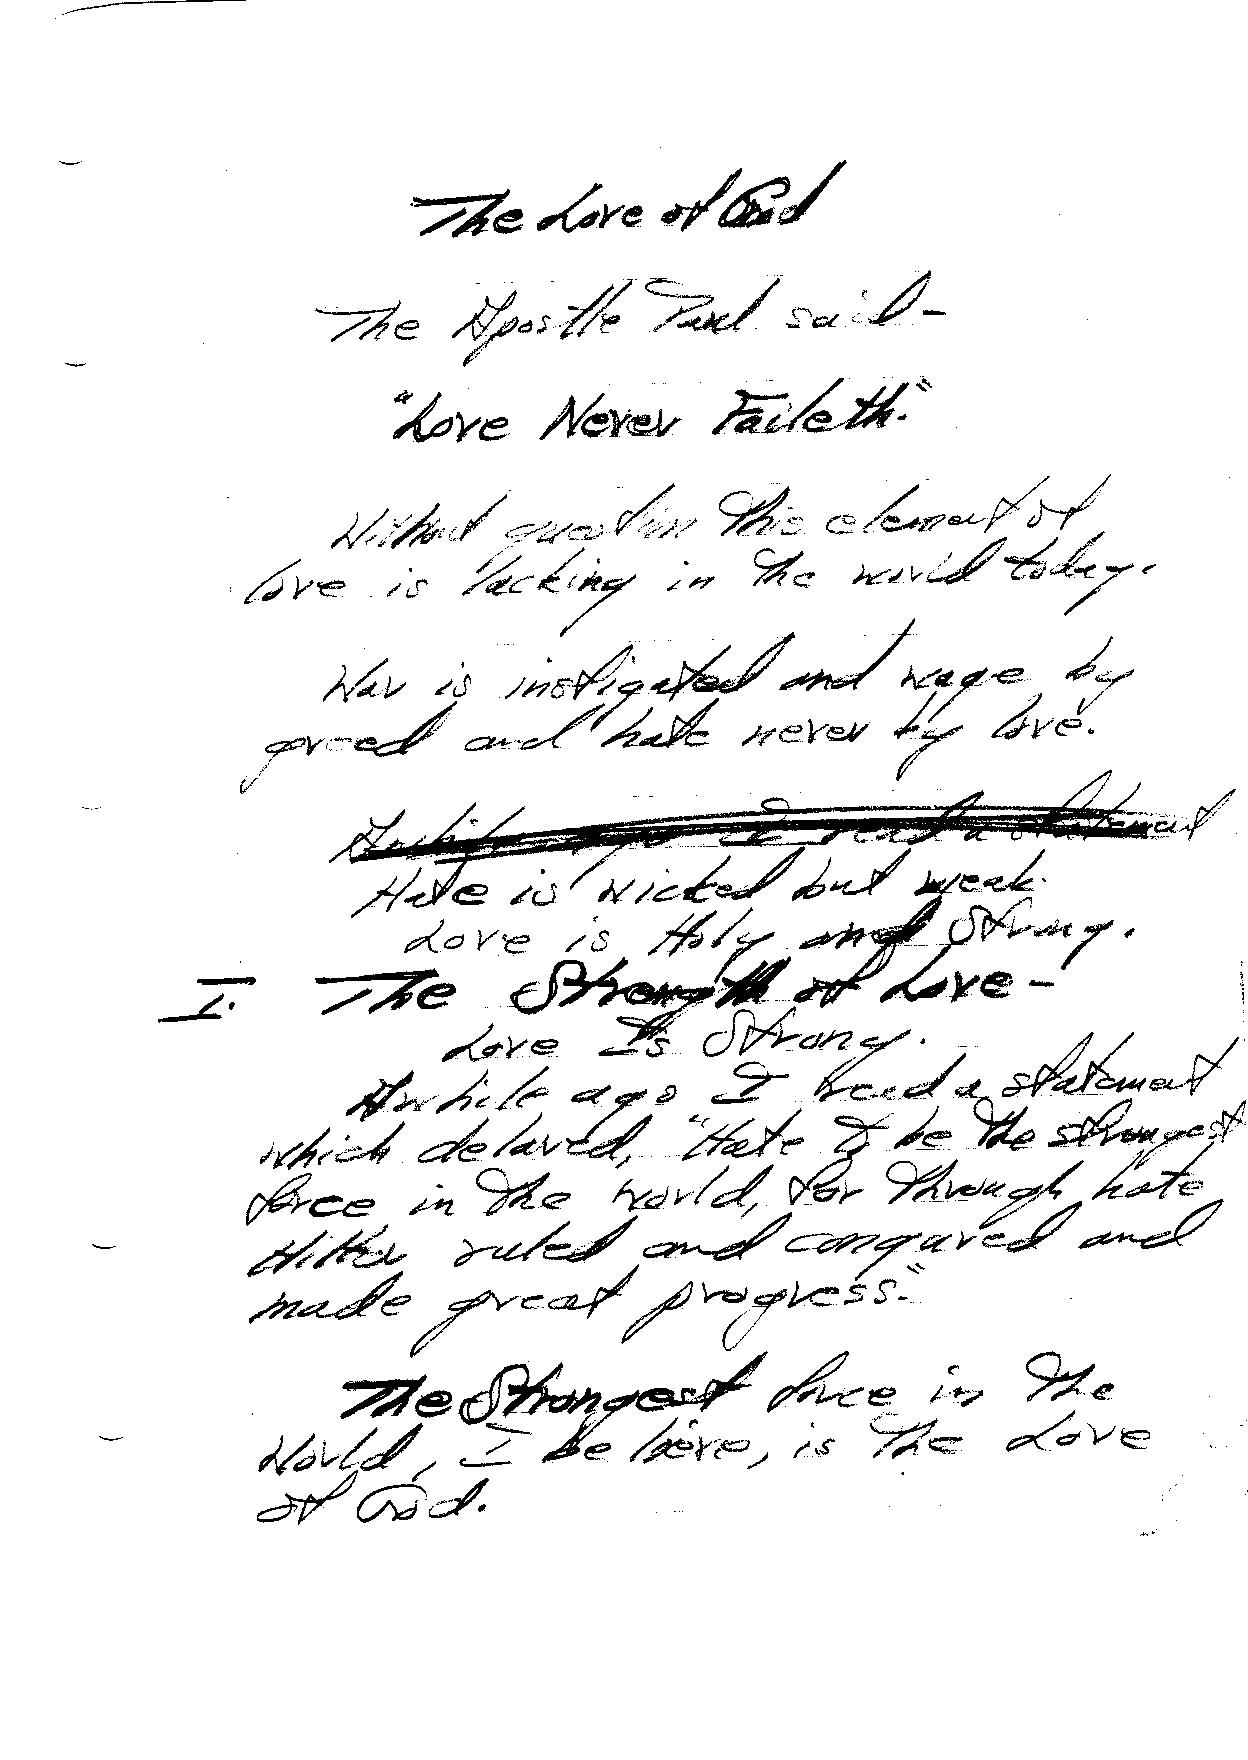 The Love of God
The Apostle Paul said-
"Love Never Faileth."
Without question this element of
love is lacking in the world today.
War is instigated and wage by
greed and hate never by love.
Awhile ago I read a statement
Hate is wicked but weak.
Love is Holy and Strong.
I. The Strength of Love-
Love Is Strong.
Awhile ago I read a statement
which delared, "Hate to be the strongest
force in the world, for through hate
Hitler ruled and conqured and
made great progress."
The Strongest force in the
World, I believe, is the Love
of God.